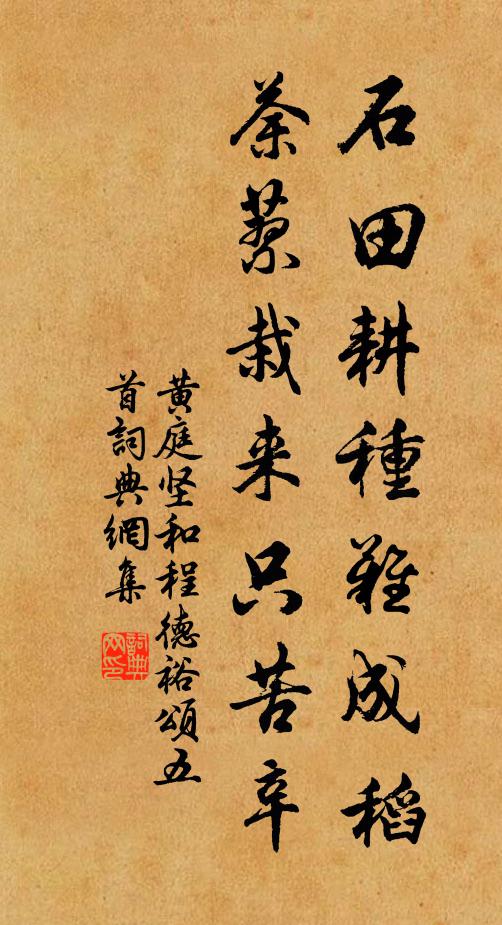 石田耕種難成稻
荼蓼栽来只苦辛
黄庭坚和程德裕頌五
首詞典網集
詞典網印